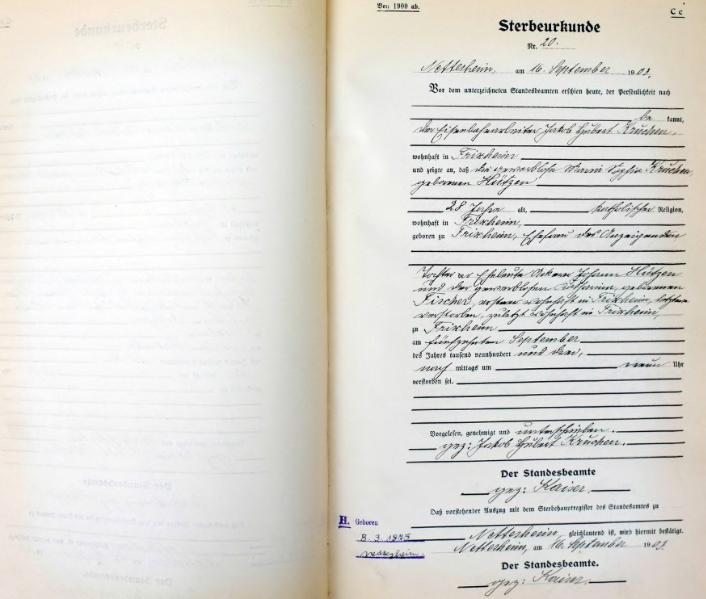 Vor: 1900 ab.
C c
Sterbeurkunde
Nr. 20.
Nettersheim, am 16. September 1903.
Vor dem unterzeichneten Standesbeamten erschien heute, der Persönlichkeit nach
be kannt,
der Eisenbahnarbeiter Jakob Hubert Kruchen,
wohnhaft in Frixheim
und zeigte an, daß die gewerblose Maria Sophia Kruchen
geborenen Hützen
28 Jahre alt, katholischer Religion,
wohnhaft in Frixheim,
geboren zu Frixheim, Ehefrau des Anzeigenden
Tochter der Eheleute Ackerer Johann Hützen
und der gewerblosen Katharina, geborenen
Fischer, ersterer wohnhaft in Frixheim, letztere
verstorben, zuletzt wohnhaft in Frixheim,
zu Frixheim
am fünfzehnten September
des Jahres tausend neunhundert und drei,
nach mittags um neun Uhr
verstorben sei.
Vorgelesen, genehmigt und unterschrieben.
gez: Jakob Hubert Kruchen.
Der Standesbeamte
gez: Kaiser.
Daß vorstehender Auszug mit dem Sterbehauptregister des Standesamtes zu
H. Geboren
Nettersheim, gleichlautend ist, wird hiermit bestätigt.
8. 3. 1875
Nettersheim, am 16. September 1903.
Der Standesbeamte.
gez: Kaiser.